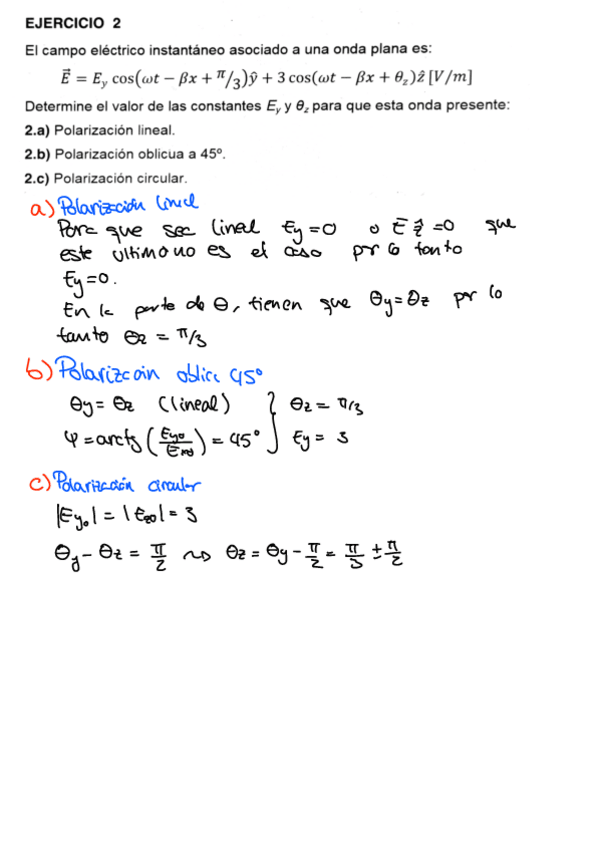 EJERCICIO 2
El campo eléctrico instantáneo asociado a una onda plana es:
E⃗ = E_y cos(ωt − βx + π/3)ŷ + 3 cos(ωt − βx + θ_z)ẑ [V/m]
Determine el valor de las constantes E_y y θ_z para que esta onda presente:
2.a) Polarización lineal.
2.b) Polarización oblicua a 45º.
2.c) Polarización circular.
a) Polarización lineal
Para que sea lineal Ey=0 o E ẑ =0 que
este ultimo no es el caso por lo tanto
Ey=0.
En la parte de θ, tienen que θy=θz por lo
tanto θz = π/3
b) Polarización oblice 45º
θy = θz (lineal) } θz = π/3
φ = arctg (Eyo/Ezo) = 45° } Ey = 3
c) Polarización circular
|Ey₀| = |Ezo| = 3
θy − θz = π/2 ⇝ θz = θy − π/2 = π/3 ± π/2